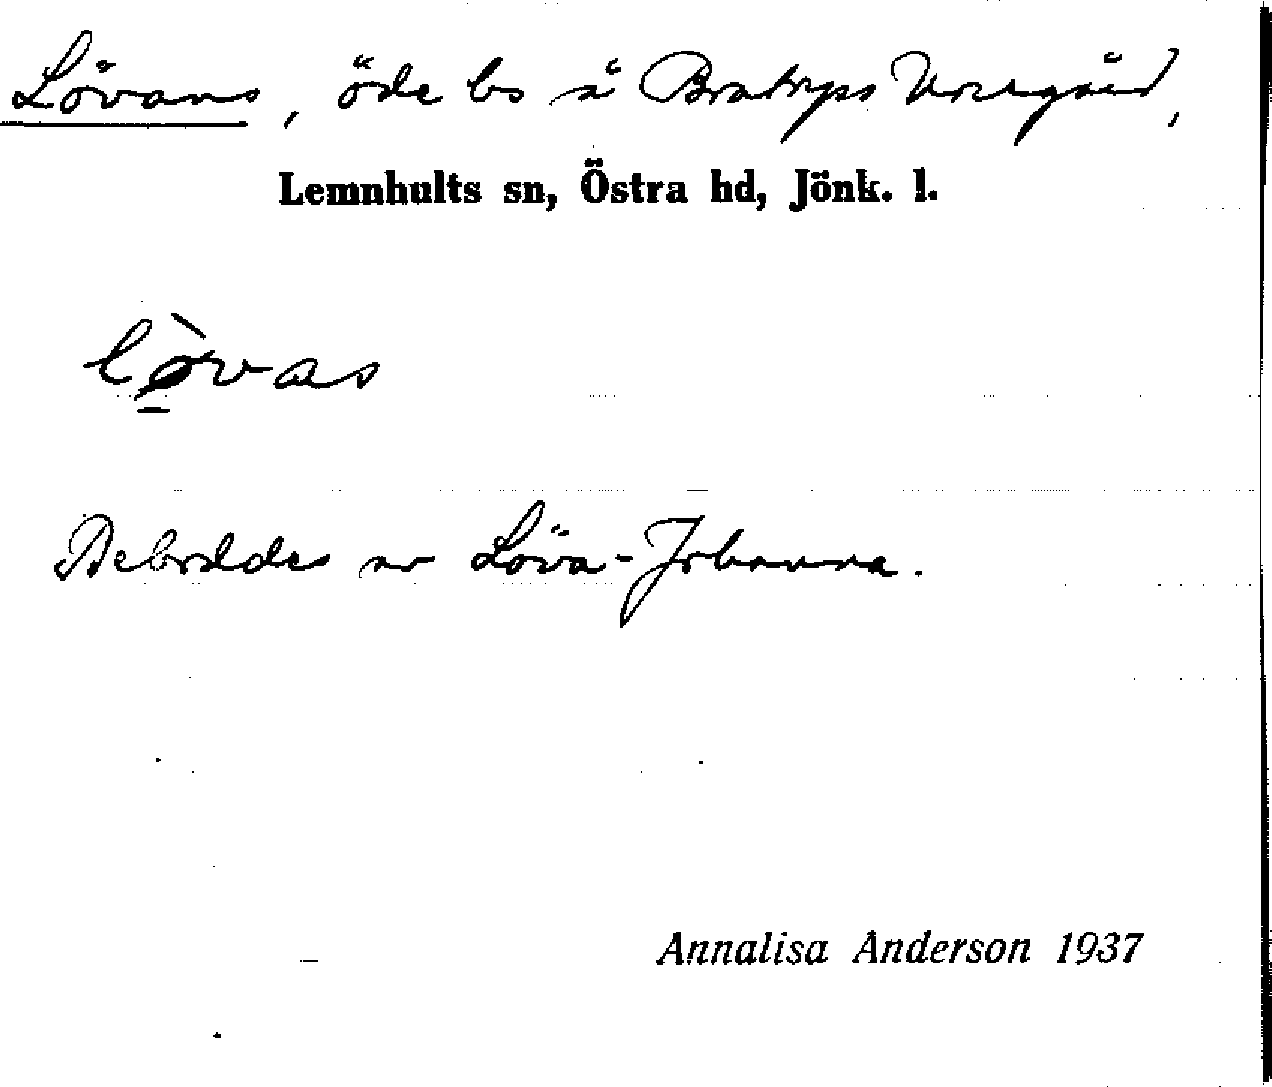 Lövans, öde bs å Bratryps Norrgård,
Lemnhults sn, Östra hd, Jönk. l.
lø̠̀vas
Bebóddes av Löva-Johanna.
Annalisa Anderson 1937